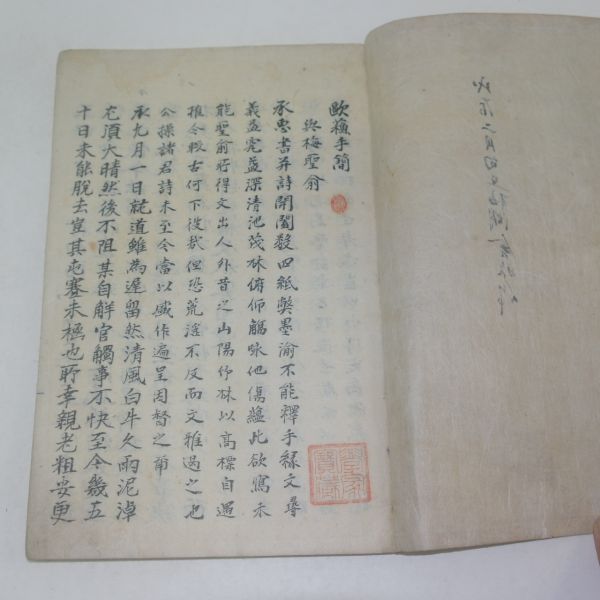 歐蘓手簡
與梅聖俞
承惠書并詩開闔數四紙獘墨渝不能釋手緑文尋
義益究益深清池茂林俯仰觴咏他傷蘊此欲寫未
能聖俞所得文出人外昔之山陽竹林以高標自遇
推今較古何下彼哉但恐荒淫不反而文雅過之也
公操諸君詩未至今當以盛作遍呈因督之爾
承九月一日就道雖為遲留然清風白牛久雨泥淖
尤須大晴然後不阻某自解官觸事不快至今幾五
十日未能脫去豈其屯蹇未極也所幸親老粗安更